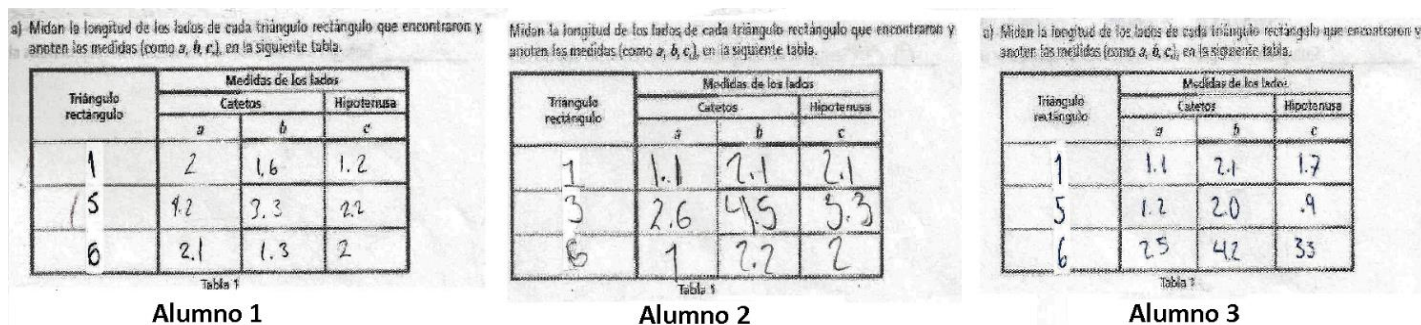 a) Midan la longitud de los lados de cada triángulo rectángulo que encontraron y
anoten las medidas (como a, b, c,), en la siguiente tabla.
Triángulo
rectángulo
Medidas de los lados
Catetos
Hipotenusa
a
b
c
1
2
1,6
1.2
5
4.2
3.3
2.2
6
2.1
1.3
2
Tabla 1
Alumno 1
Midan la longitud de los lados de cada triángulo rectángulo que encontraron y
anoten las medidas (como a, b, c,), en la siguiente tabla.
Triángulo
rectángulo
Medidas de los lados
Catetos
Hipotenusa
a
b
c
1
1.1
2.1
2.1
3
2.6
4.5
3.3
6
1
2.2
2
Tabla 1
Alumno 2
a) Midan la longitud de los lados de cada triángulo rectángulo que encontraron y
anoten las medidas (como a, b, c,), en la siguiente tabla.
Triángulo
rectángulo
Medidas de los lados
Catetos
Hipotenusa
a
b
c
1
1.1
2.1
1.7
5
1.2
2.0
.9
6
25
42
33
Tabla 1
Alumno 3